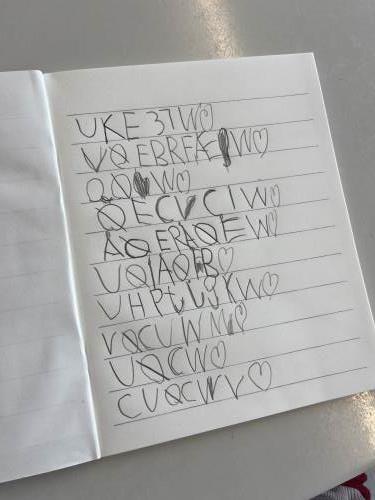 UKE3TW♡
VQEBRFK W♡
QQ W♡
QECVCIW♡
AQERAQEW♡
UQIAQRB♡
UHPUUYKW♡
VQCUWM♡
UQCWO♡
CUQCWV♡